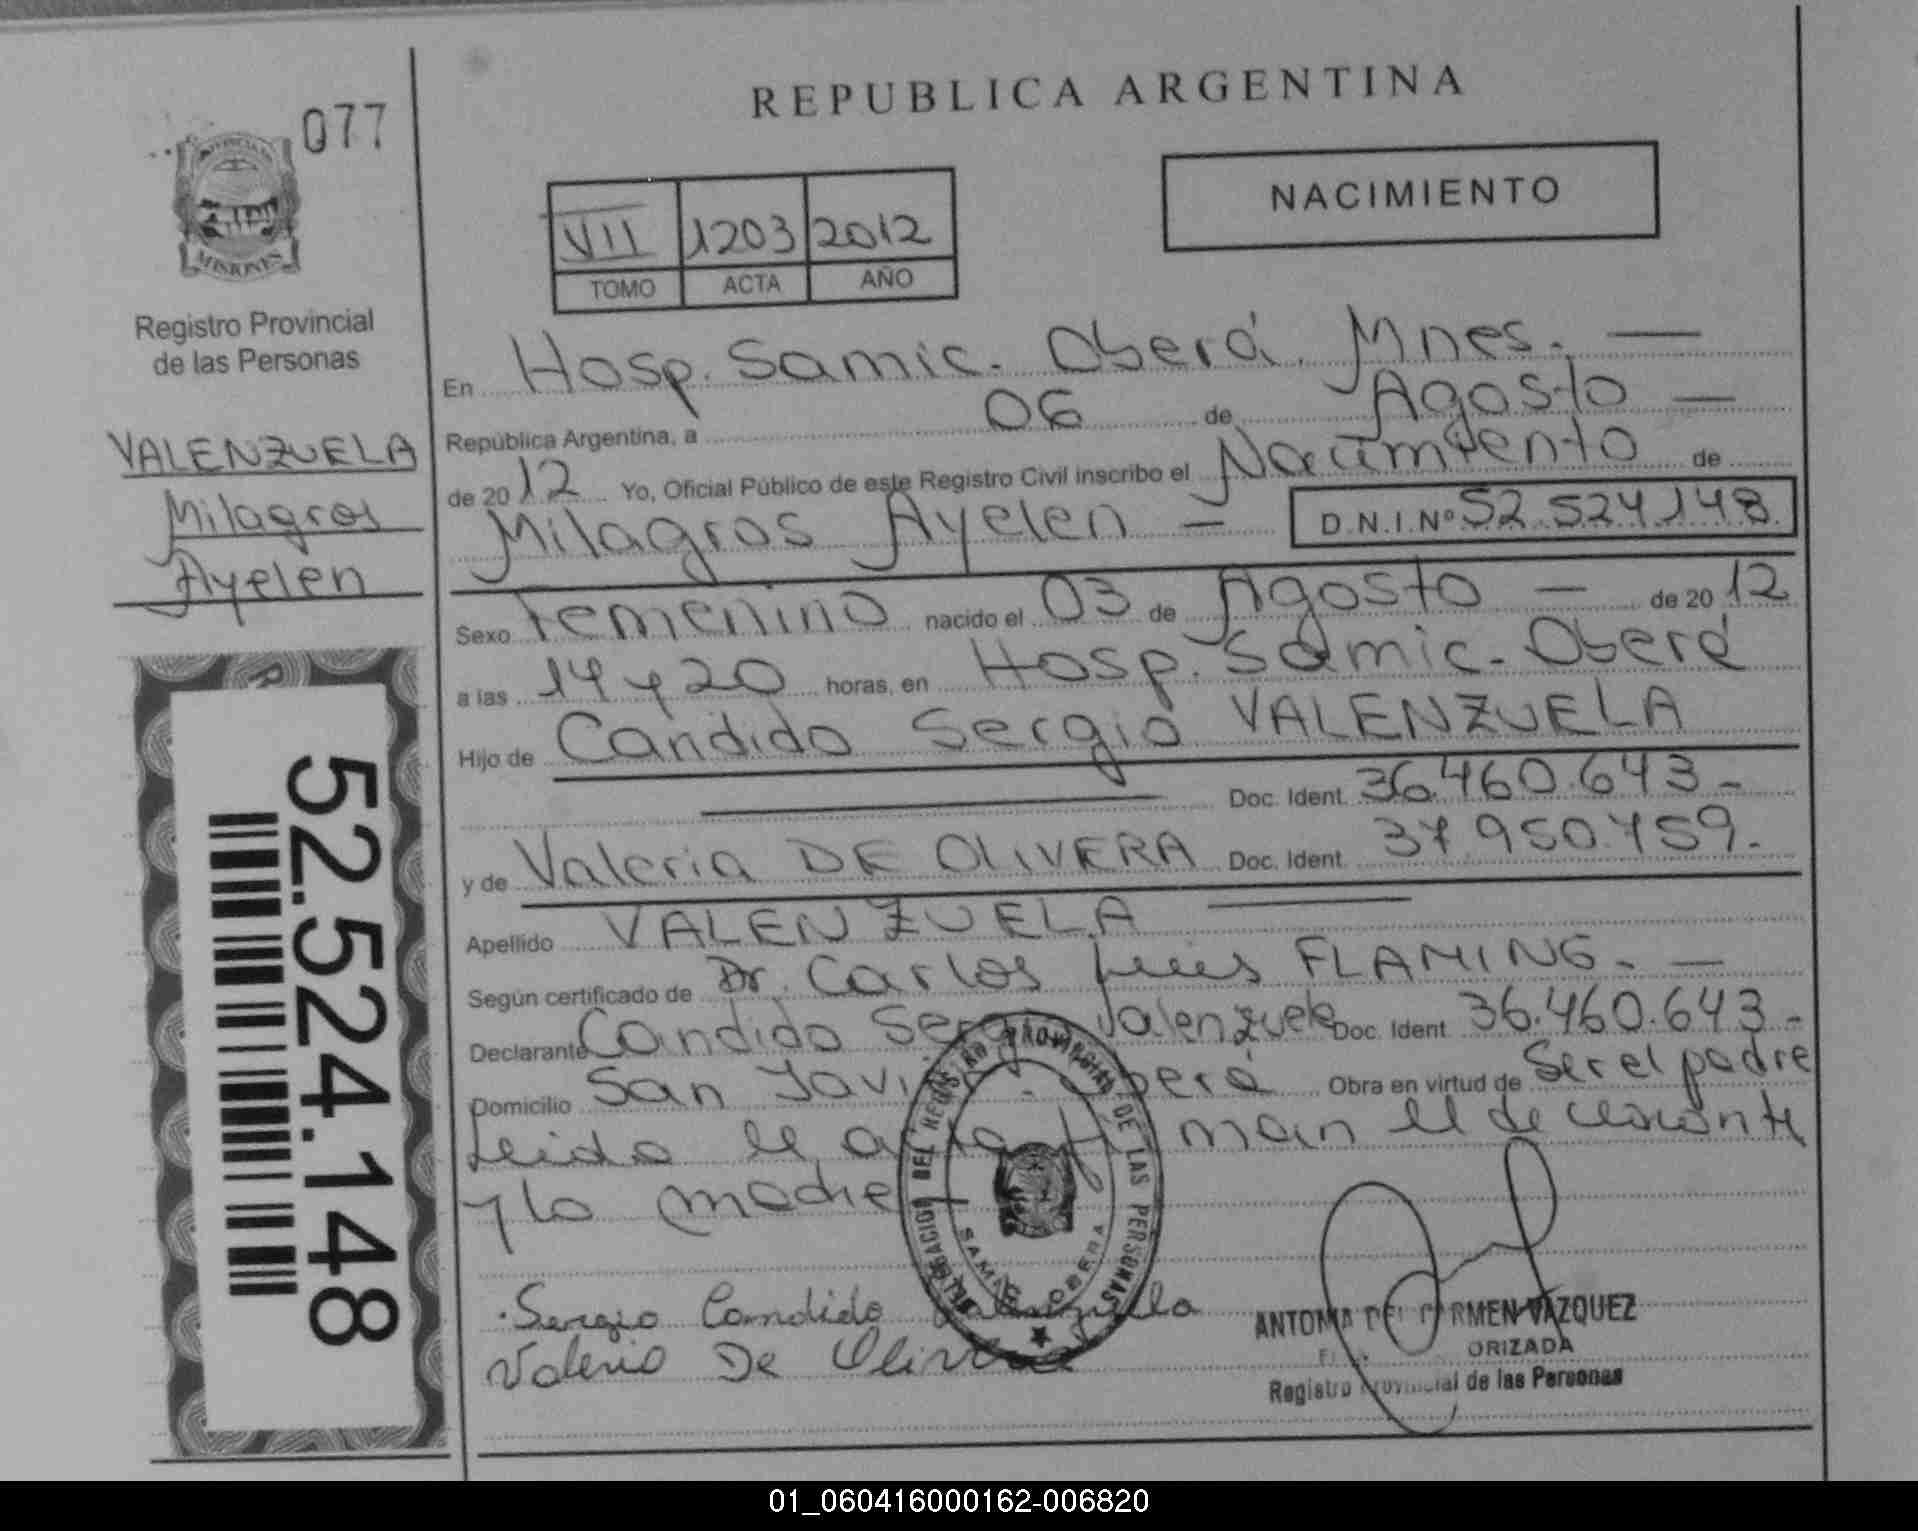 077
MISIONES
Registro Provincial
de las Personas
VALENZUELA
Milagros
Ayelen
52.524.148
REPUBLICA ARGENTINA
NACIMIENTO
VII 1203 2012
TOMO ACTA AÑO
En Hosp. Samic. Oberá. Mnes. —
República Argentina, a 06 de Agosto —
de 2012 Yo, Oficial Público de este Registro Civil inscribo el Nacimiento de
Milagros Ayelen — D.N.I.Nº 52.524.148
Sexo Femenino nacido el 03 de Agosto — de 2012
a las 14 y 20 horas, en Hosp. Samic. Oberá
Hijo de Candido Sergio VALENZUELA
Doc. Ident. 36.460.643-
y de Valeria DE OLIVERA Doc. Ident. 37.950.759.
Apellido VALENZUELA
Según certificado de Dr. Carlos Luis FLAMING. —
Declarante Candido Sergio Valenzuela Doc. Ident. 36.460.643-
Domicilio San Javier. Oberá Obra en virtud de Ser el padre
Leida el acta firman el declarante
y la madre
DELEGACION DEL REGISTRO PROVINCIAL DE LAS PERSONAS
SAMIC OBERA
Sergio Candido Valenzuela
Valeria De Olivera
ANTONIA DEL CARMEN VAZQUEZ
ORIZADA
Registro Provincial de las Personas
01_060416000162-006820